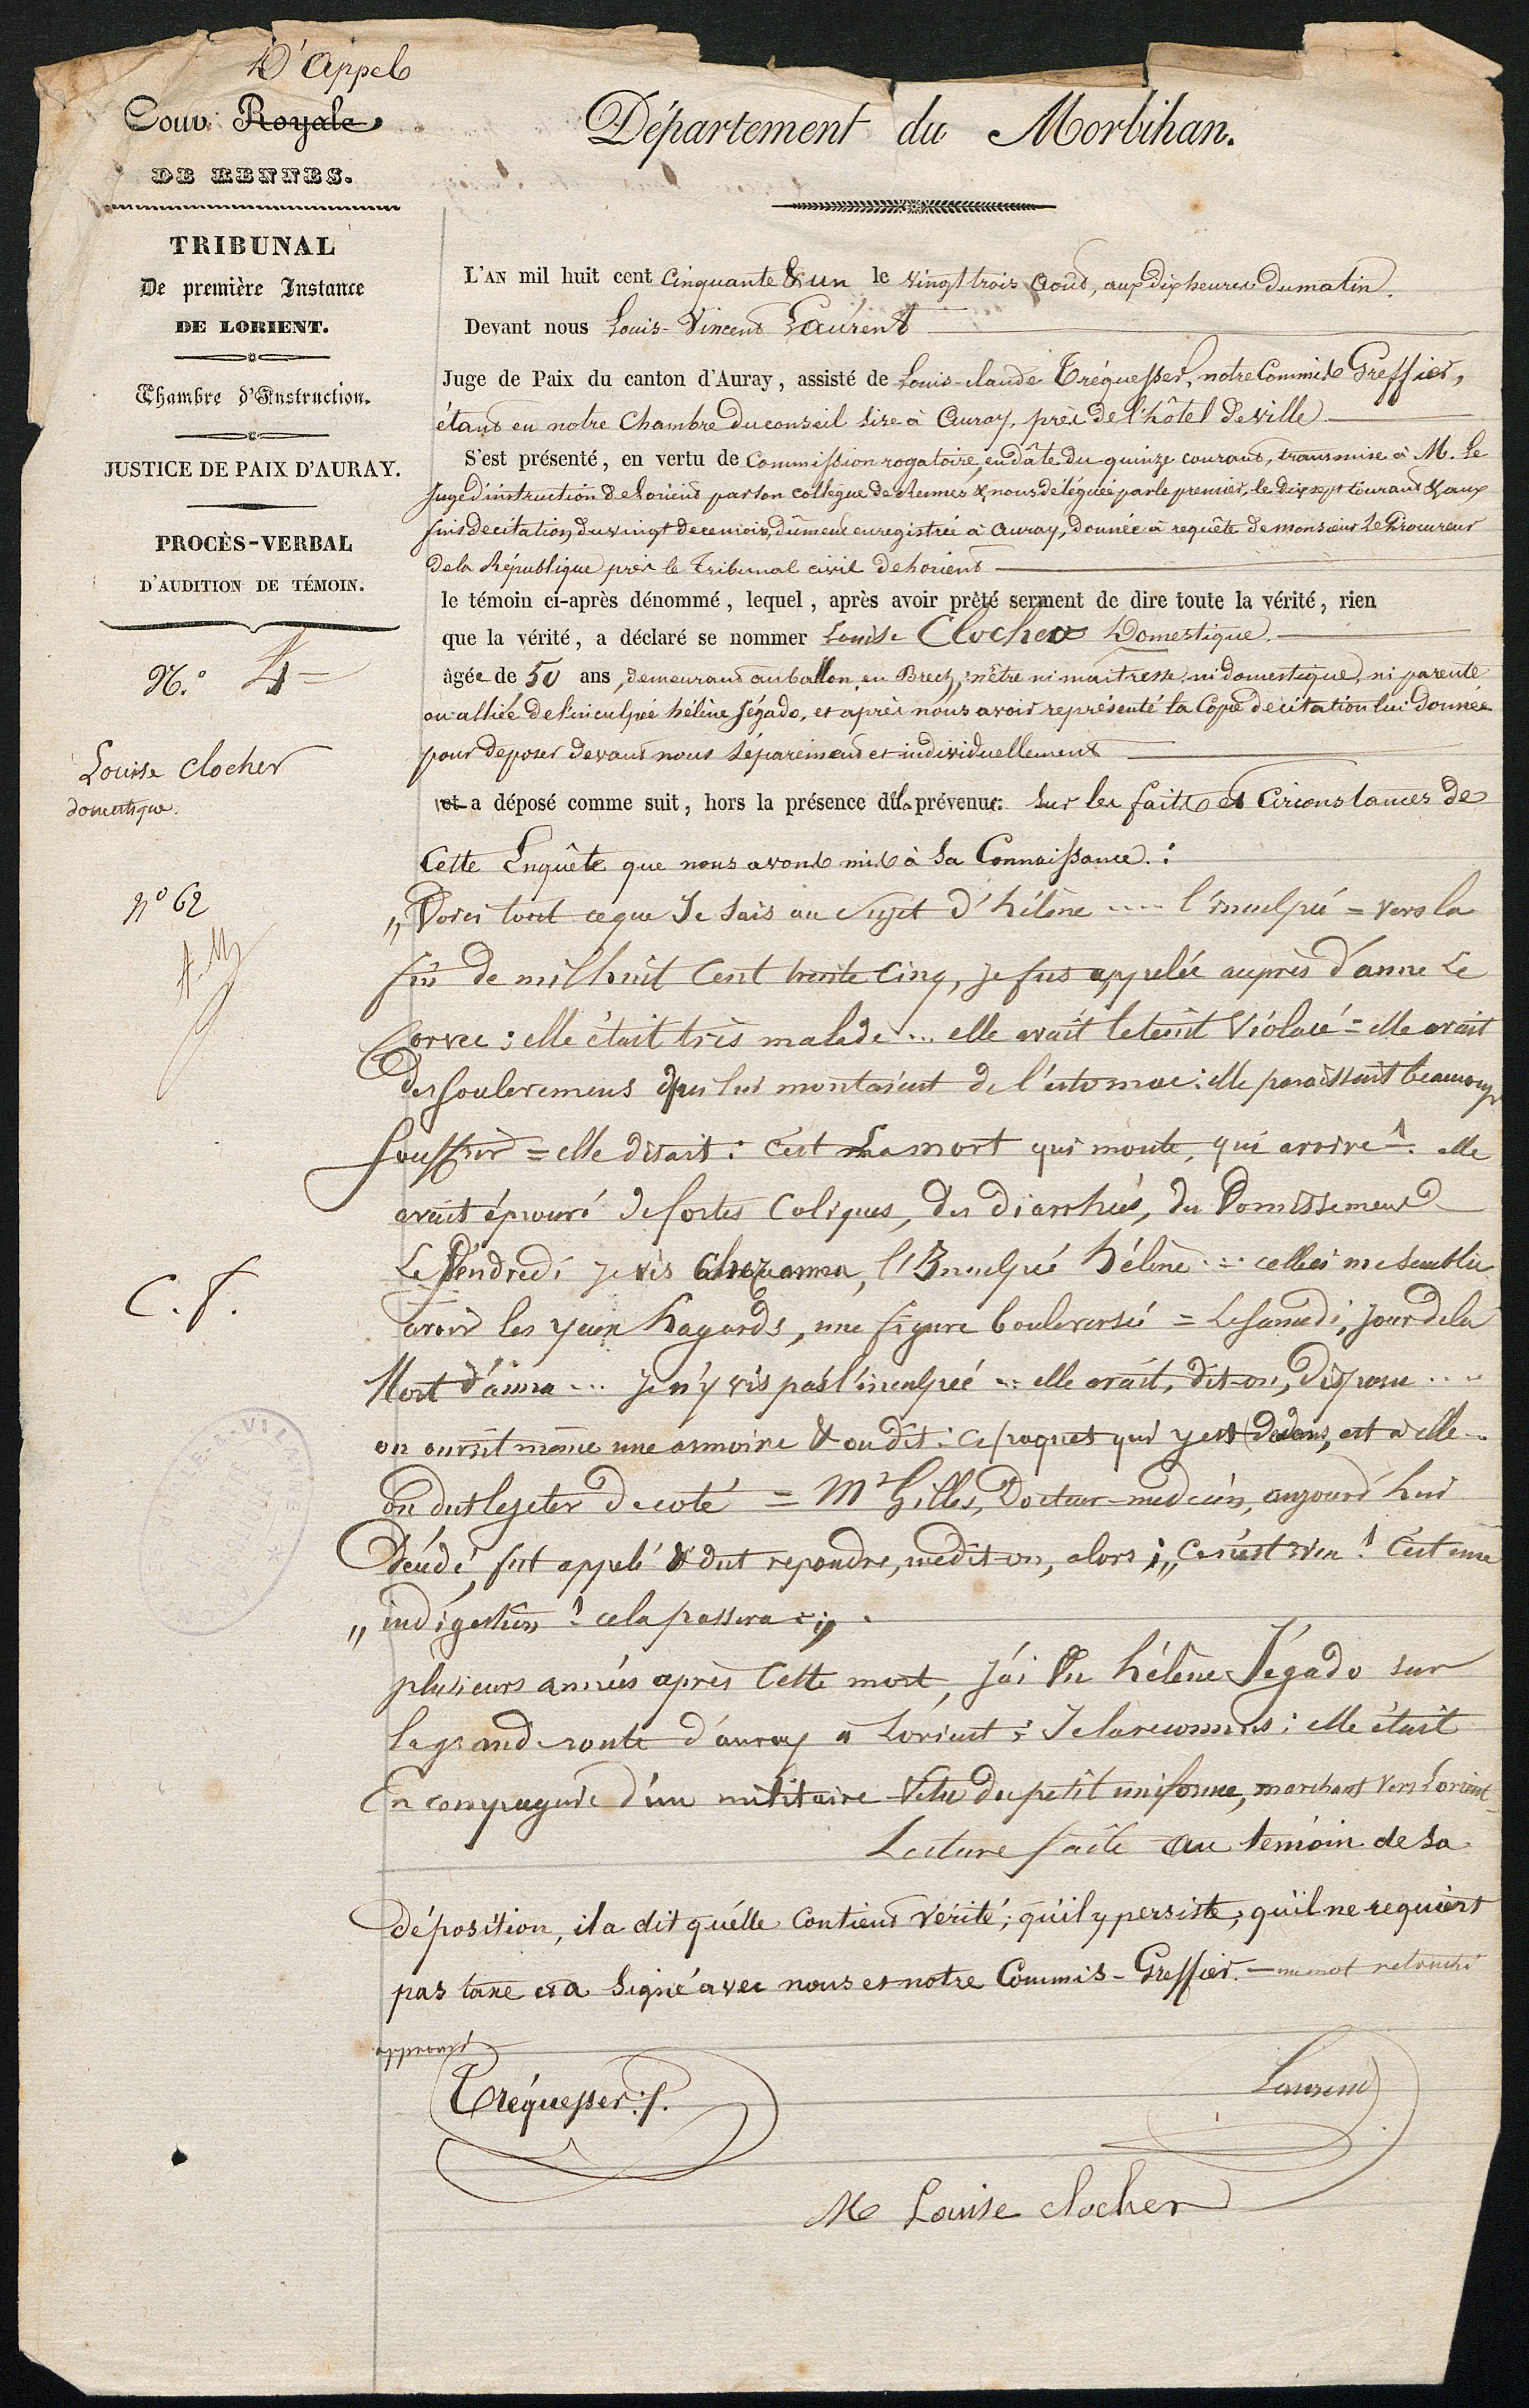 D'Appel
Cour Royale
DE RENNES.
TRIBUNAL
De première Instance
DE LORIENT.
Chambre d'Instruction.
JUSTICE DE PAIX D'AURAY.
PROCÈS-VERBAL
D'AUDITION DE TÉMOIN.
N.° 4=
Louise Clocher
domestique.
N° 62
C. f.
Département du Morbihan.
L'AN mil huit cent Cinquante & un le vingt trois Août, aux dix heures du matin.
Devant nous Louis-Vincent Laurent
Juge de Paix du canton d'Auray, assisté de Louis-Claude Tréquesser, notre Commis Greffier,
étant en notre Chambre du conseil sise à Auray, près de l'hôtel de ville
S'est présenté, en vertu de Commission rogatoire, en dâte du quinze courant, transmise à M. le
Juge d'instruction de Lorient par son collègue de Rennes & nous déléguée par le premier, le dix sept courant & aux
fins de citation du vingt de ce mois, dûment enregistrée à Auray, donnée à requête de monsieur le Procureur
de la République près le Tribunal civil de Lorient
le témoin ci-après dénommé, lequel, après avoir prêté serment de dire toute la vérité, rien
que la vérité, a déclaré se nommer Louise Clocher Domestique.
âgée de 50 ans, demeurant au ballon, en Brech, n'être ni maitresse, ni domestique, ni parente
ou alliée de l'inculpée hélène Jégado, et après nous avoir représenté la Copie de citation lui donnée
pour deposer devant nous séparément et individuellement
et a déposé comme suit, hors la présence de la prévenue: sur les faits et Circonstances de
Cette Enquête que nous avons mis à sa Connaissance.:
"Voici tout ce que Je sais au sujet d'hélène .... l'inculpée = vers la
fin de mil huit Cent trente Cinq, je fus appelée auprès d'anne Le
Corvec; elle était très malade ... elle avait le teint violacé = elle avait
des soulevemens qui lui montaient de l'estomac: elle paraissait beaucoup
souffrir = elle disait: C'est la mort qui monte, qui arrive!. elle
avait éprouvé de fortes Coliques, des diarrhées, des Vomissemens
Le Vendredi je vis chez anna, l'Inculpée hélène ... celle ci me sembla
avoir les yeux hagards, une figure bouleversée = Le samedi, jour de la
Mort d'anna ... Je n'y vis pas l'inculpée ... elle avait, dit-on, disparu ....
on ouvrit même une armoire & on dit: ce paquet qui y est dedans, est à elle ..
on dut le jeter de coté = Mr Gilles, Docteur-médecin, aujourd'hui
Décédé, fut appelé & dut repondre, me dit-on, alors; "Ce n'est rien! C'est une
"indigestion! cela passera ..".
plusieurs années après Cette mort, j'ai Vu hélène Jégado sur
la grande route d'auray à Lorient; Je la reconnus; elle était
En compagnie d'un militaire Vetu du petit uniforme, marchant vers Lorient
Lecture faite au temoin de sa
déposition, il a dit qu'elle Contient vérité; qu'il y persiste; qu'il ne requiert
pas taxe et a Signé avec nous et notre Commis-Greffier. — un mot retouché
approuvé
Tréquesser. f.
Laurent
M Louise clocher